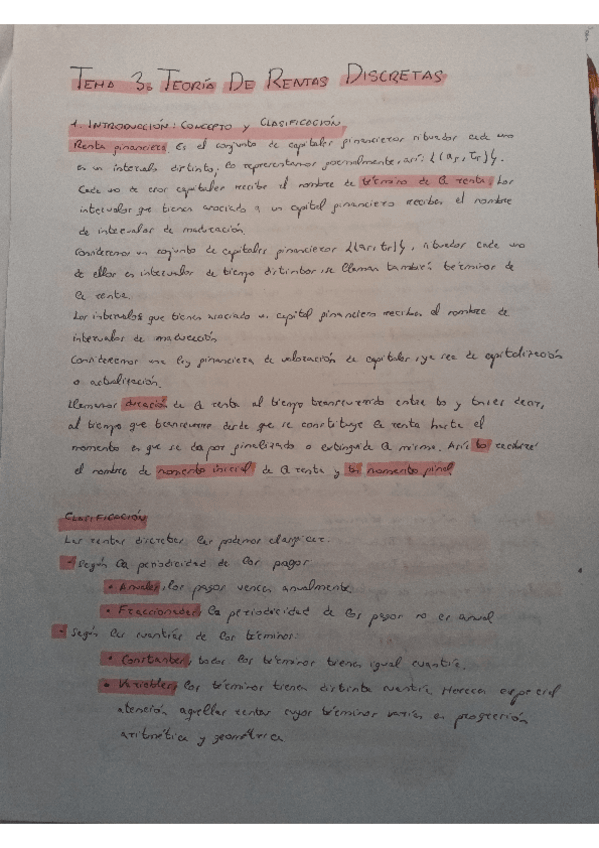 TEMA 3: TEORÍA DE RENTAS DISCRETAS
1. INTRODUCCIÓN: CONCEPTO y CLASIFICACIÓN
Renta financiera: Es el conjunto de capitales financieros situados cada uno
en un intervalo distinto; lo representamos formalmente, así: {(as, Tr)}.
Cada uno de esos capitales recibe el nombre de término de la renta. Los
intervalos que tienen asociado a un capital financiero reciben el nombre
de intervalos de maduración.
Consideremos un conjunto de capitales financieros {(as, tr)}, situados cada uno
de ellos en intervalos de tiempo distintos, se llaman también términos de
la renta.
Los intervalos que tienen asociado un capital financiero reciben el nombre de
intervalos de maduración.
Consideremos una ley financiera de valoración de capitales, ya sea de capitalización
o actualización.
Llamamos duración de la renta al tiempo transcurrido entre to y tn, es decir,
al tiempo que transcurre desde que se constituye la renta hasta el
momento en que se da por finalizado o extinguida la misma. Así, to recibirá
el nombre de momento inicial de la renta y tn momento final.
CLASIFICACIÓN
Las rentas discretas las podemos clasificar:
• Según la periodicidad de los pagos
• Anuales, los pagos vencen anualmente
• Fraccionadas, la periodicidad de los pagos no es anual
• Según las cuantías de los términos
• Constantes, todos los términos tienen igual cuantía.
• Variables, los términos tienen distinta cuantía. Merecen especial
atención aquellas rentas cuyos términos varían en progresión
aritmética y geométrica